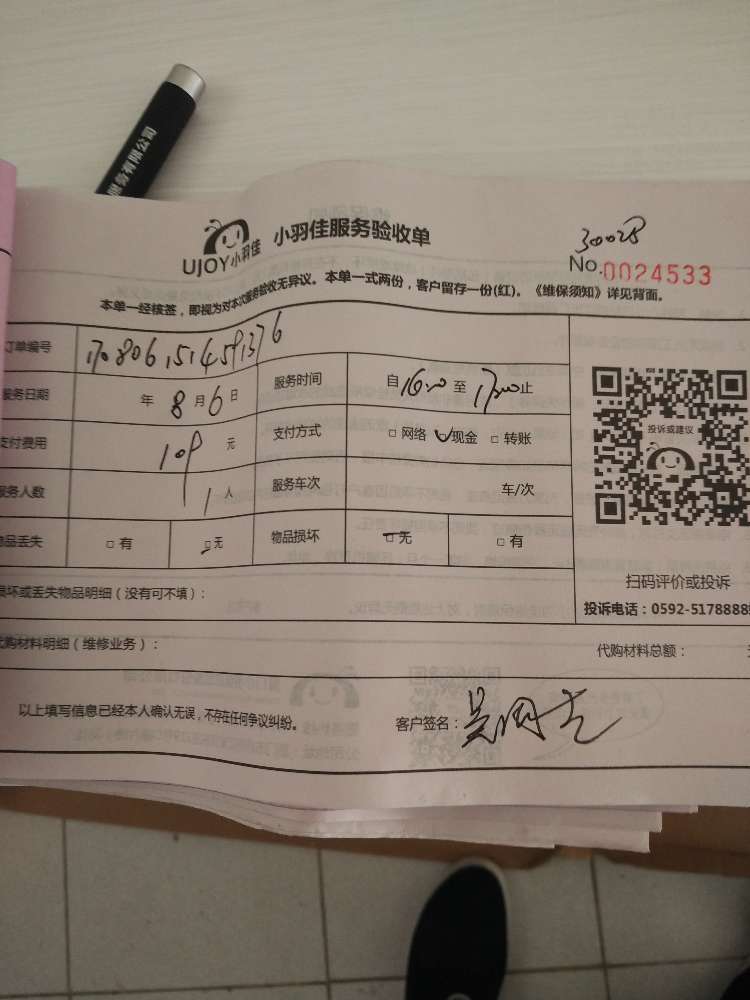 限公司
小羽佳服务验收单
UJOY小羽佳
30028
No.0024533
本单一经核签，即视为对本次服务验收无异议。本单一式两份，客户留存一份(红)。《维保须知》详见背面。
订单编号 1708061514591376
服务时间 自16:00至17:00止
服务日期 年8月6日
支付费用 109元
支付方式 □网络 ☑现金 □转账
服务人数 1人
服务车次 车/次
物品丢失 □有 ☑无
物品损坏 ☑无 □有
投诉或建议
扫码评价或投诉
投诉电话：0592-5178888
损坏或丢失物品明细（没有可不填）：
代购材料明细（维修业务）：
代购材料总额：
以上填写信息已经本人确认无误，不存在任何争议纠纷。
客户签名：